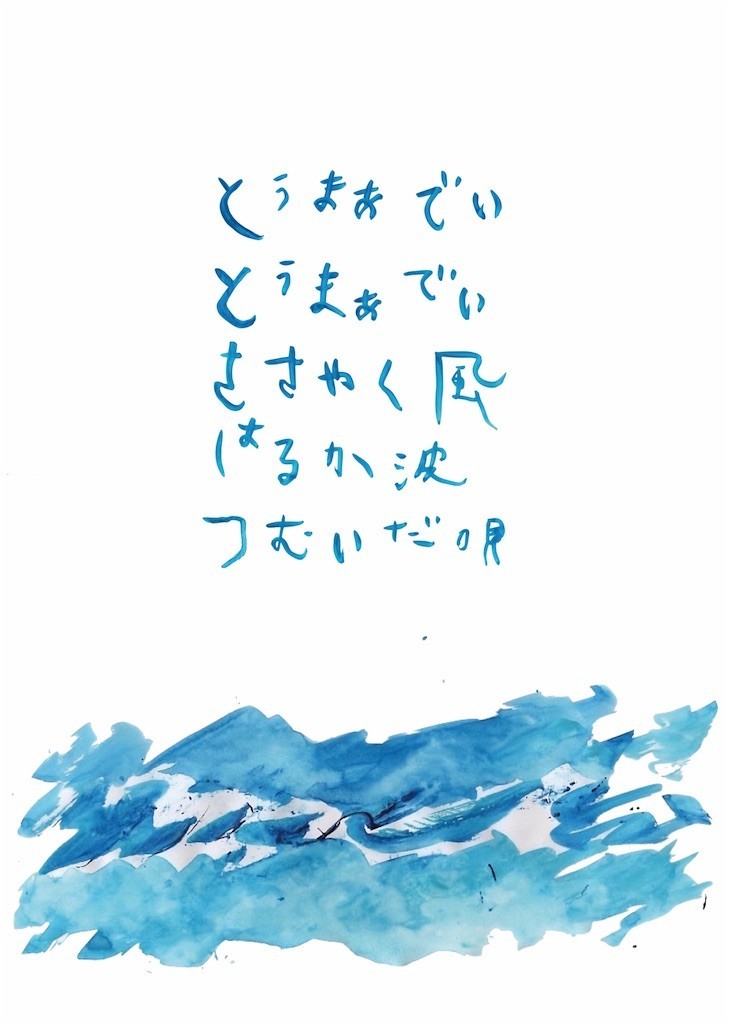 とぅまぁでぃ
とぅまぁでぃ
ささやく風
はるか波
つむいだ唄